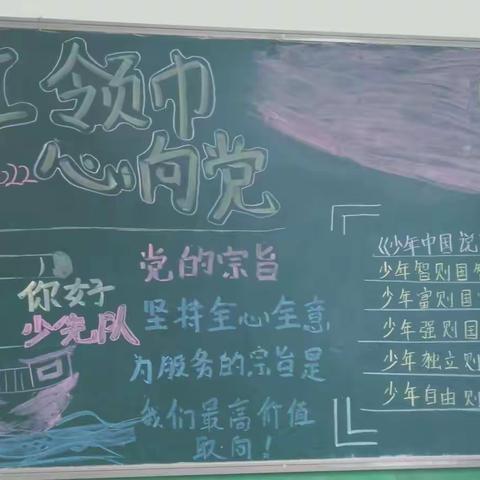 红领巾
心向党
2022
你好
少先队
党的宗旨
坚持全心全意
为服务的宗旨是
我们最高价值
取向!
《少年中国说
少年智则国
少年富则国
少年强则国
少年独立则
少年自由则